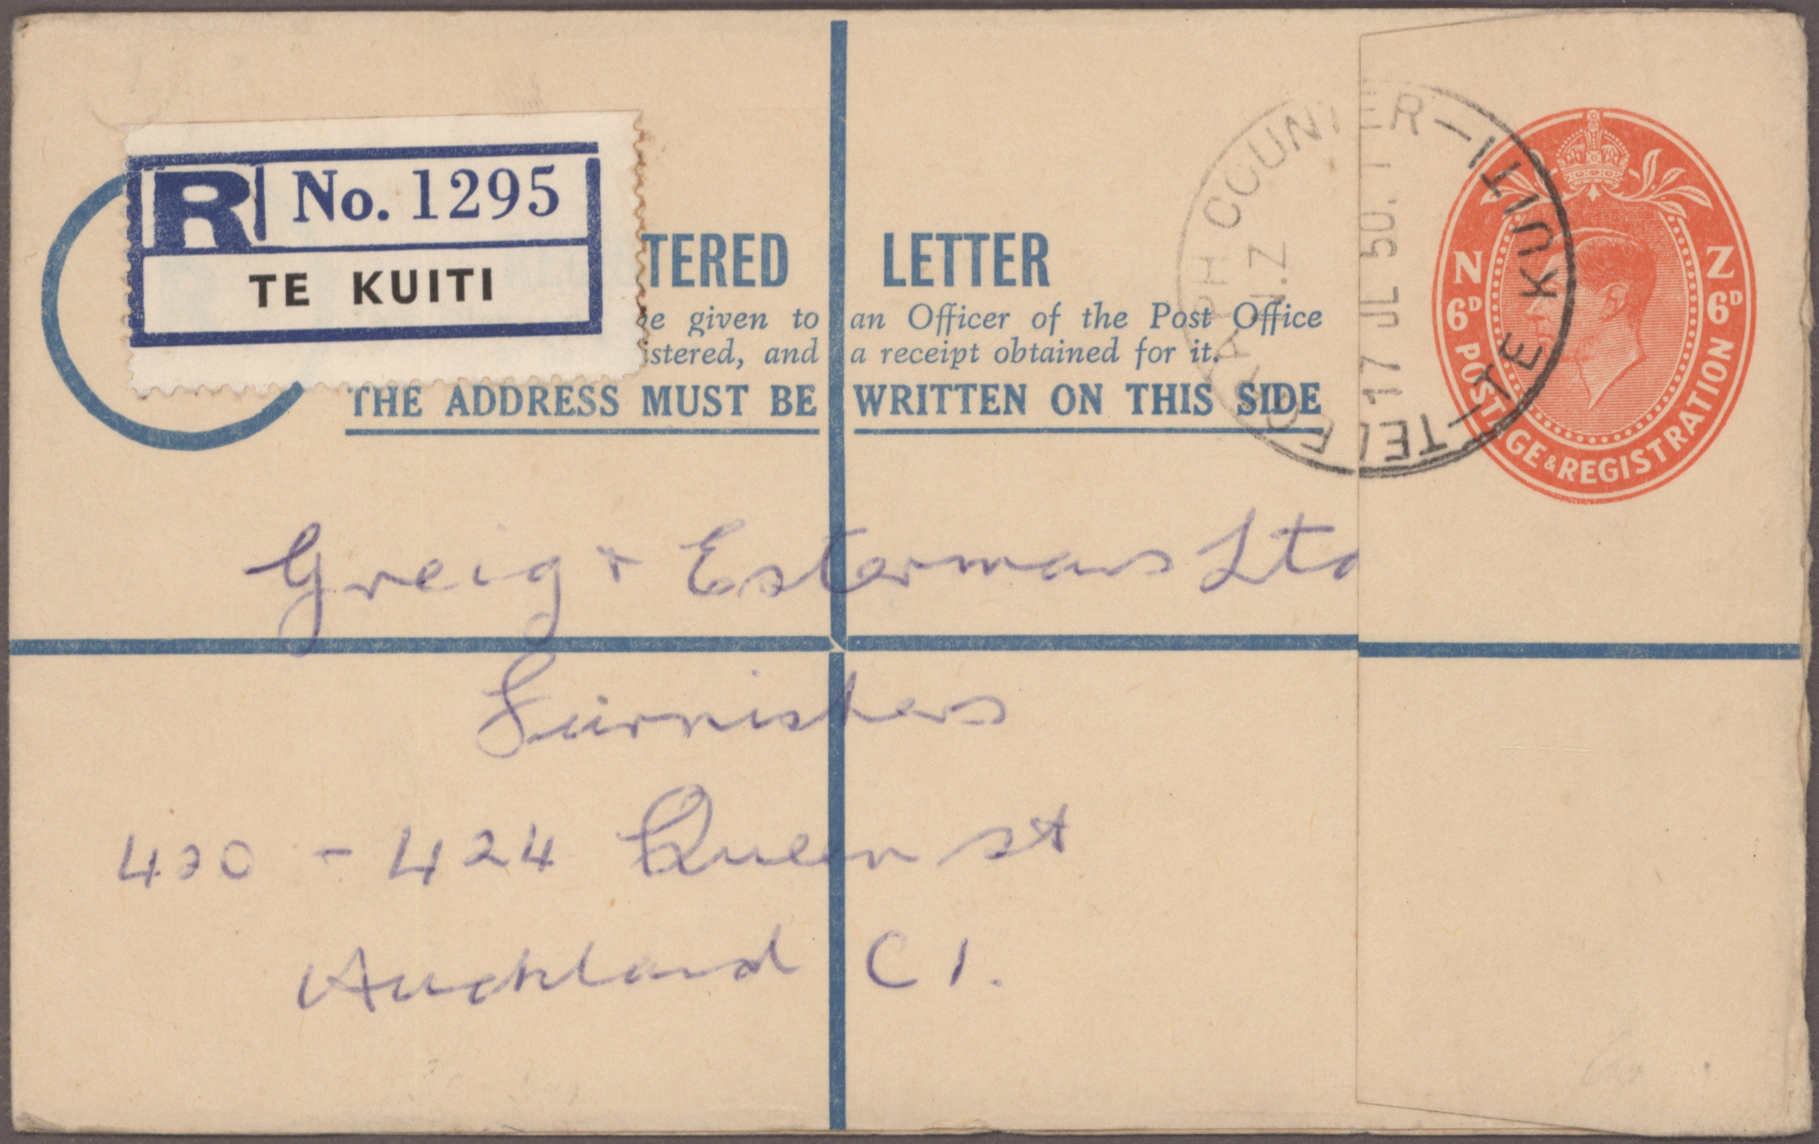 R No. 1295
TE KUITI
TERED LETTER
be given to an Officer of the Post Office
istered, and a receipt obtained for it.
THE ADDRESS MUST BE WRITTEN ON THIS SIDE
TELEGRAPH COUNTER - TE KUITI -
N.Z
17 JL 50.
N Z
6D 6D
POSTAGE & REGISTRATION
Greig + Estermans Ltd
Furnishers
420 - 424 Queen st
Auckland C 1.